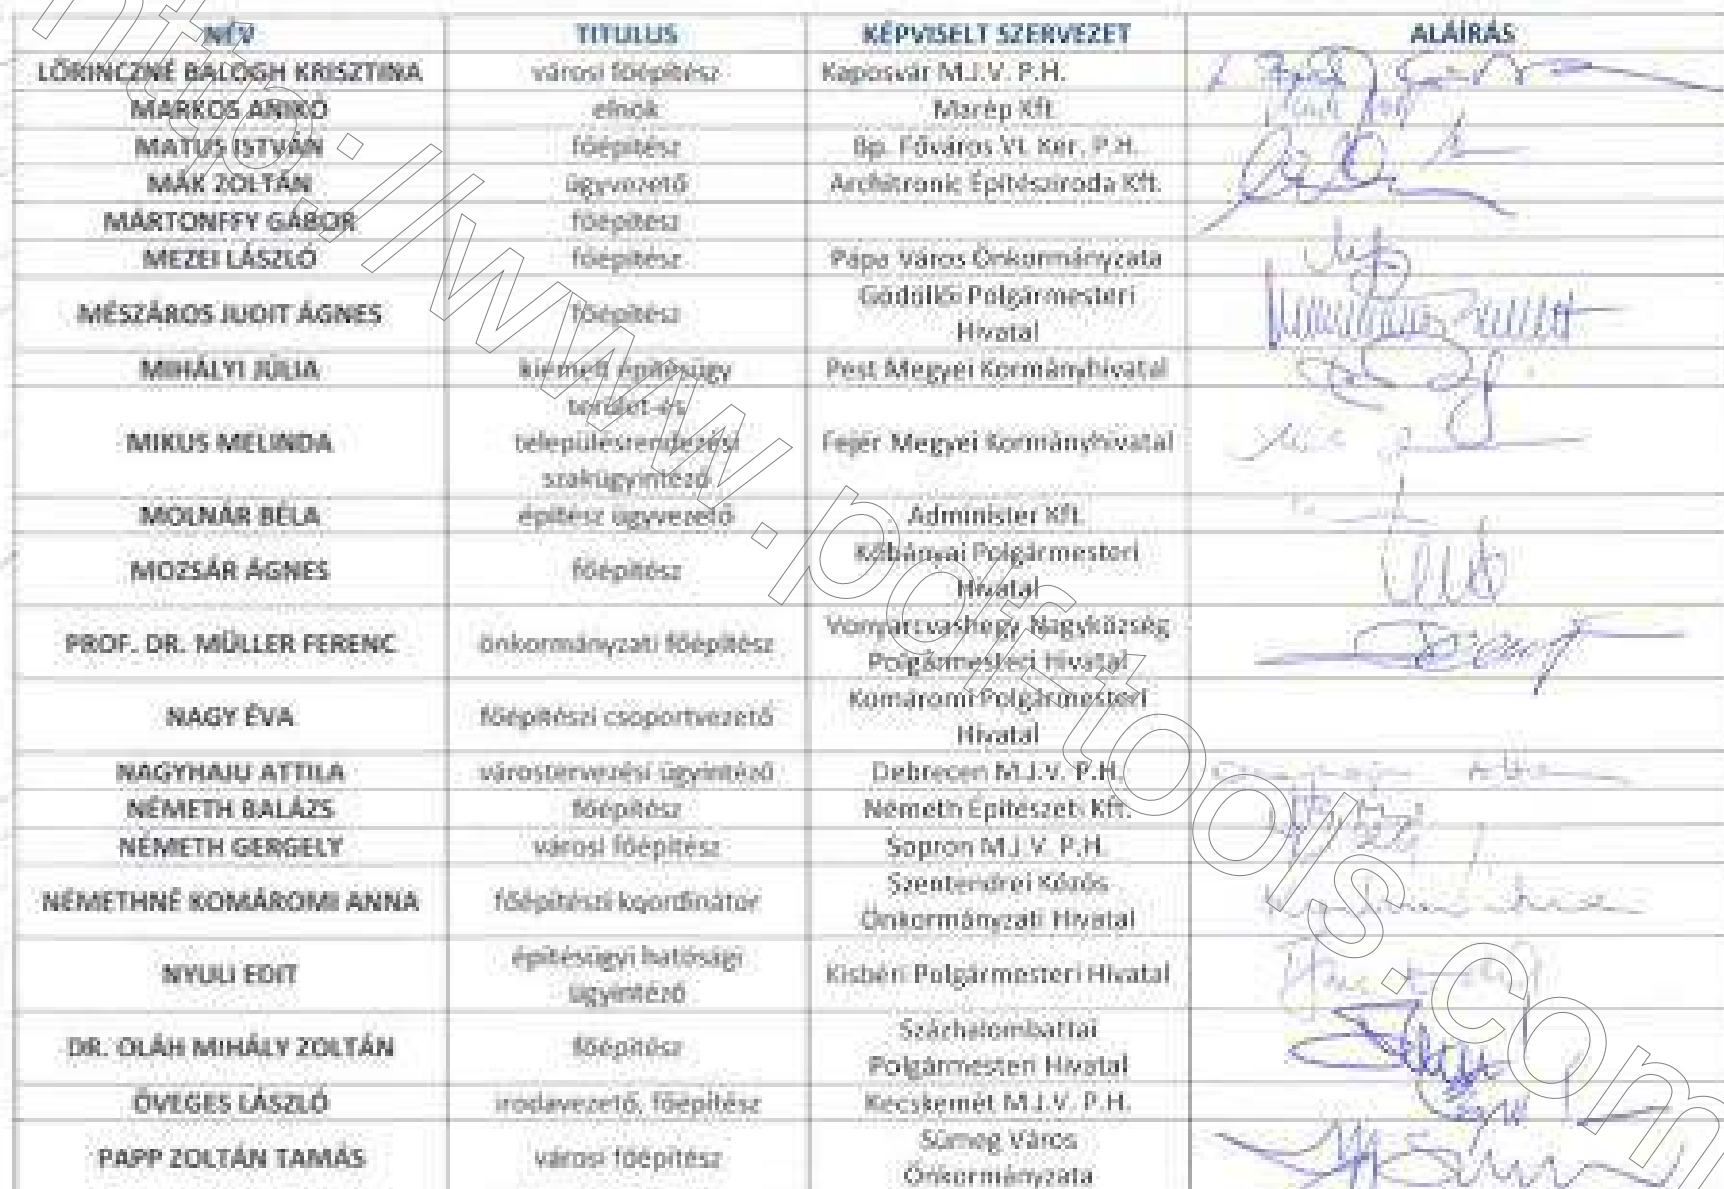 NÉV TITULUS KÉPVISELT SZERVEZET ALÁÍRÁS
LŐRINCZNÉ BALOGH KRISZTINA városi főépítész Kaposvár M.J.V. P.H.
MARKOS ANIKÓ elnök Marép Kft.
MATUS ISTVÁN főépítész Bp. Főváros VI. Ker. P.H.
MÁK ZOLTÁN ügyvezető Architronic Építésziroda Kft.
MÁRTONFFY GÁBOR főépítész
MEZEI LÁSZLÓ főépítész Pápa Város Önkormányzata
MÉSZÁROS JUDIT ÁGNES főépítész Gödöllői Polgármesteri
Hivatal
MIHÁLYI JÚLIA kiemelt építésügy Pest Megyei Kormányhivatal
terület-és
MIKUS MELINDA településrendezési Fejér Megyei Kormányhivatal
szakügyintéző
MOLNÁR BÉLA építész ügyvezető Administer Kft.
MOZSÁR ÁGNES főépítész Kőbányai Polgármesteri
Hivatal
PROF. DR. MÜLLER FERENC önkormányzati főépítész Vonyarcvashegy Nagyközség
Polgármesteri Hivatal
NAGY ÉVA főépítészi csoportvezető Komáromi Polgármesteri
Hivatal
NAGYHAJU ATTILA várostervezési ügyintéző Debrecen M.J.V. P.H.
NÉMETH BALÁZS főépítész Németh Építészeti Kft.
NÉMETH GERGELY városi főépítész Sopron M.J.V. P.H.
NÉMETHNÉ KOMÁROMI ANNA főépítészi koordinátor Szentendrei Közös
Önkormányzati Hivatal
NYULI EDIT építésügyi hatósági
ügyintéző Kisbéri Polgármesteri Hivatal
DR. OLÁH MIHÁLY ZOLTÁN főépítész Százhalombattai
Polgármesteri Hivatal
ÖVEGES LÁSZLÓ irodavezető, főépítész Kecskemét M.J.V. P.H.
PAPP ZOLTÁN TAMÁS városi főépítész Sümeg Város
Önkormányzata
http://www.pdf-tools.com